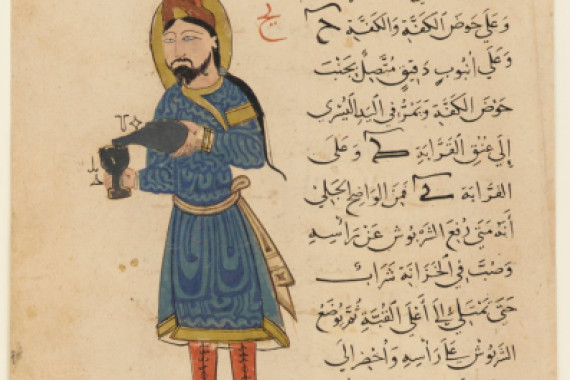 وَعَلَي حَوضِ الكَفَّةِ وَالكَفَّةِ
وَعَلَي أُنبُوبٍ دَقِيقٍ مُتَّصِلٍ بِجَنبَتِ
حَوضِ الكَفَّةِ وَيَمُرُّ فِي اليَدِ اليُسرَي
إلَي عُنُقِ القَرَّابَةِ وَعَلَى
القَرَابَة فَمِنَ الوَاضِحِ الجَلِيِّ
أنَّهُ مَتَى رُفِعَ الشَّربُوش عَن رَاسِهِ
وَصُبَّ فِي الخِزَانَةِ شَرَابٌ
حَتَّى تَمتَلِئَ إلَى أعلَى القُبَّةِ ثُمَّ يُوضَعُ
الشَّربُوشُ عَلَى رَأسِهِ وَأُحضِرَ إلَى